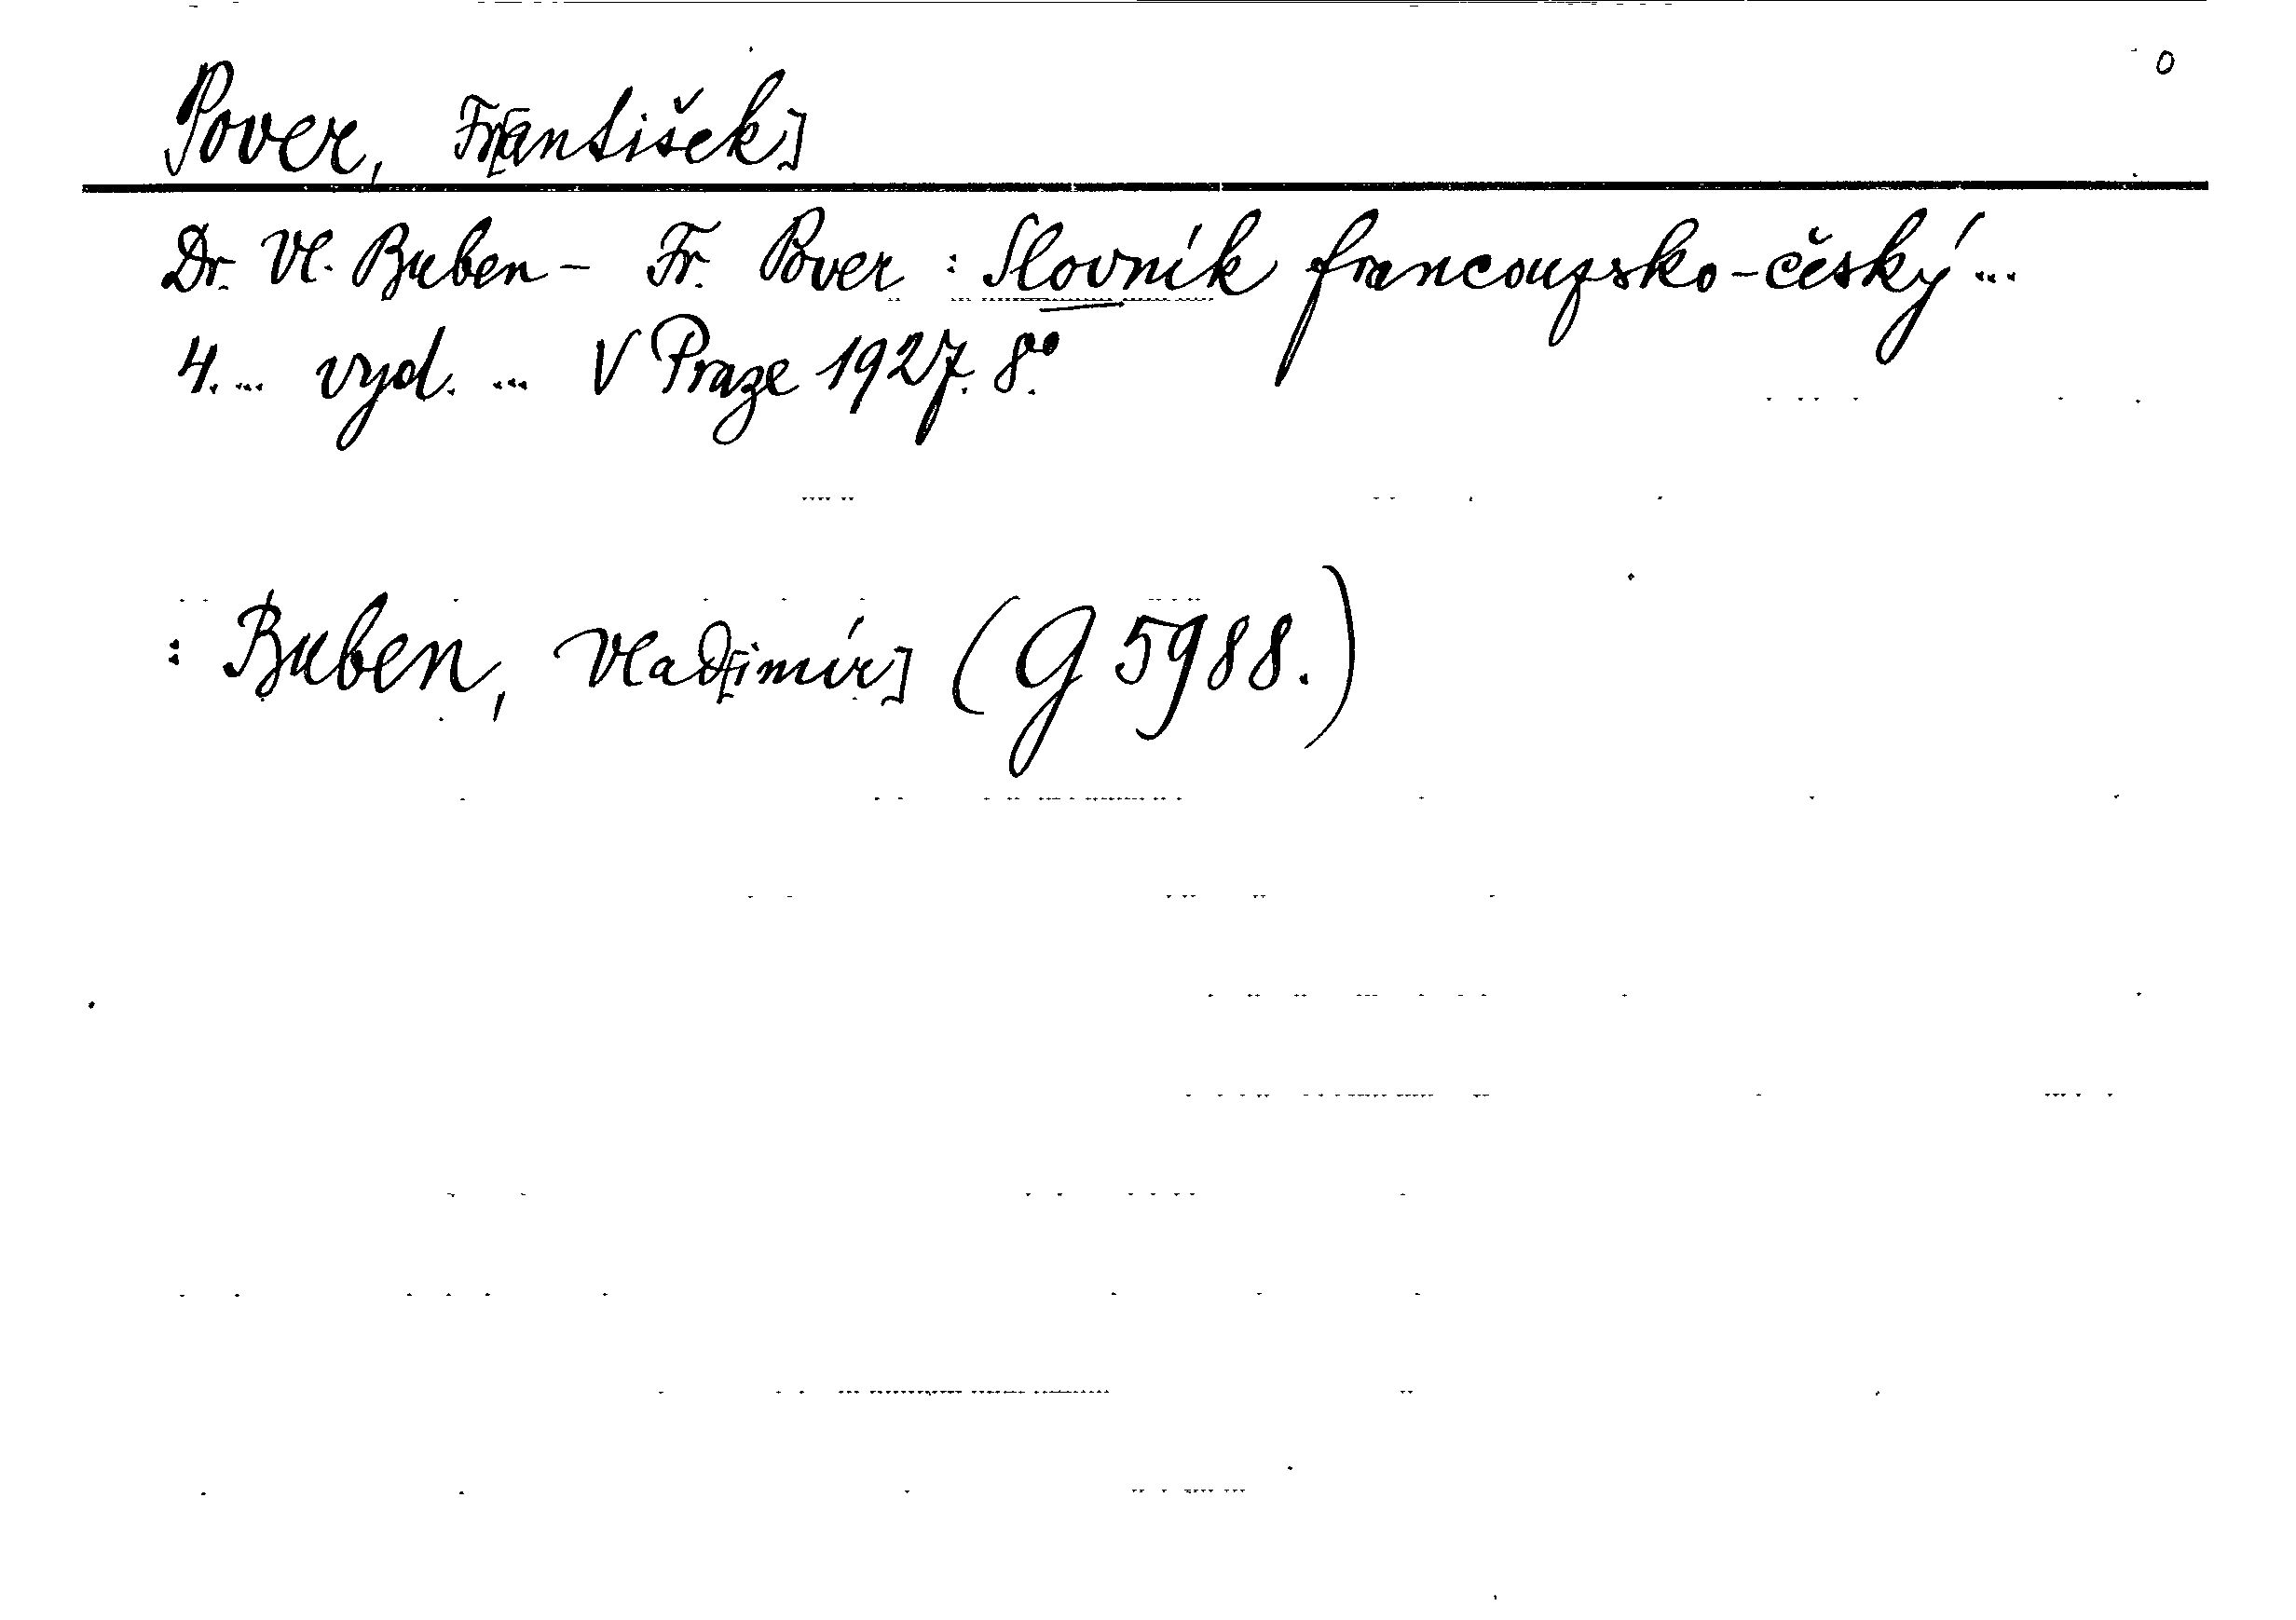 0
Pover, Fr[antišek]
Dr. Vl. Buben - Fr. Pover : Slovník francouzsko-český ...
4. ... vyd. ... V Praze 1927. 8°.
: Buben, Vlad[imír] (G 5988.)